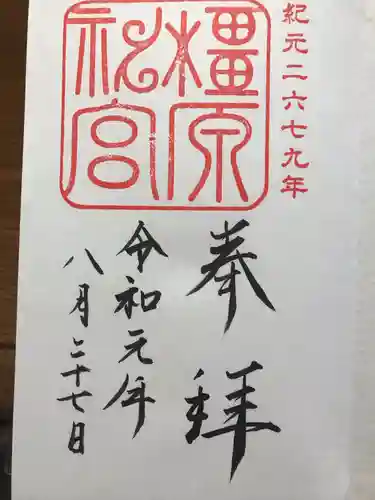 紀元二六七九年
橿原神宮
奉拝
令和元年
八月二十七日